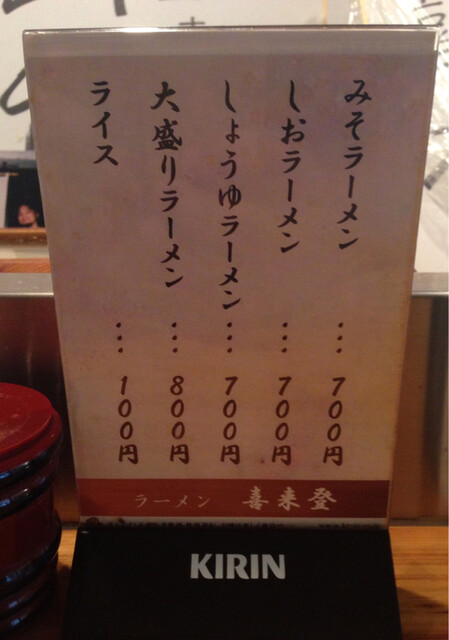 みそラーメン … 700円
しおラーメン … 700円
しょうゆラーメン … 700円
大盛りラーメン … 800円
ライス … 100円
ラーメン 喜来登
KIRIN